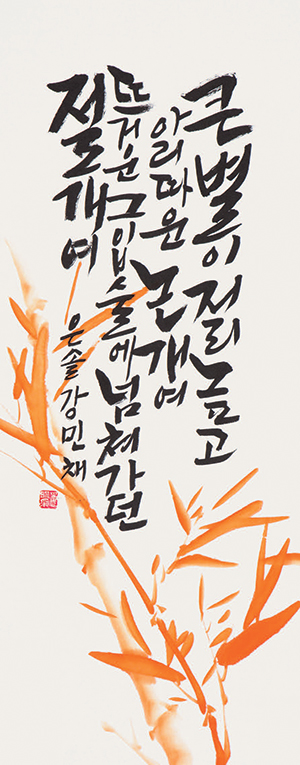 큰별이 저리 높고
아리따운 논개여
뜨거운 그 입술에 넘쳐가던
절개여
은솔 강민채